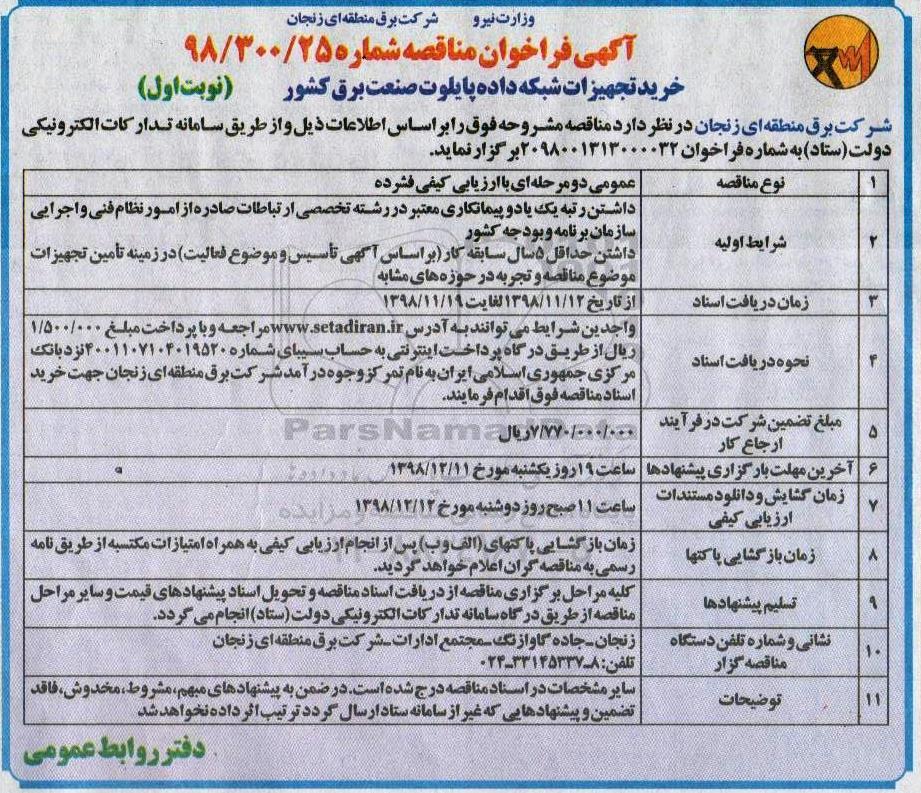 وزارت نیرو شرکت برق منطقه ای زنجان
آگهی فراخوان مناقصه شماره ۹۸/۳۰۰/۲۵
خرید تجهیزات شبکه داده پایلوت صنعت برق کشور (نوبت اول)
شرکت برق منطقه ای زنجان در نظر دارد مناقصه مشروحه فوق را بر اساس اطلاعات ذیل و از طریق سامانه تدارکات الکترونیکی
دولت (ستاد) به شماره فراخوان ۲۰۹۸۰۰۱۳۱۳۰۰۰۰۳۲ برگزار نماید.
۱ نوع مناقصه عمومی دو مرحله ای با ارزیابی کیفی فشرده
۲ شرایط اولیه داشتن رتبه یک یا دو پیمانکاری معتبر در رشته تخصصی ارتباطات صادره از امور نظام فنی و اجرایی
سازمان برنامه و بودجه کشور
داشتن حداقل ۵ سال سابقه کار (بر اساس آگهی تأسیس و موضوع فعالیت) در زمینه تأمین تجهیزات
موضوع مناقصه و تجربه در حوزه های مشابه
۳ زمان دریافت اسناد از تاریخ ۱۳۹۸/۱۱/۱۲ لغایت ۱۳۹۸/۱۱/۱۹
۴ نحوه دریافت اسناد واجدین شرایط می توانند به آدرس www.setadiran.ir مراجعه و با پرداخت مبلغ ۱/۵۰۰/۰۰۰
ریال از طریق درگاه پرداخت اینترنتی به حساب سیبای شماره ۴۰۰۱۱۰۷۱۰۴۰۱۹۵۲۰ نزد بانک
مرکزی جمهوری اسلامی ایران به نام تمرکز وجوه درآمد شرکت برق منطقه ای زنجان جهت خرید
اسناد مناقصه فوق اقدام فرمایند.
ParsNamadData
۵ مبلغ تضمین شرکت در فرآیند
ارجاع کار ۷/۷۷۰/۰۰۰/۰۰۰ ریال
۶ آخرین مهلت بارگزاری پیشنهادها ساعت ۱۹ روز یکشنبه مورخ ۱۳۹۸/۱۲/۱۱
۷ زمان گشایش و دانلود مستندات
ارزیابی کیفی ساعت ۱۱ صبح روز دوشنبه مورخ ۱۳۹۸/۱۲/۱۲
۸ زمان بازگشایی پاکتها زمان بازگشایی پاکتهای (الف و ب) پس از انجام ارزیابی کیفی به همراه امتیازات مکتسبه از طریق نامه
رسمی به مناقصه گران اعلام خواهد گردید.
۹ تسلیم پیشنهادها کلیه مراحل برگزاری مناقصه از دریافت اسناد مناقصه و تحویل اسناد پیشنهادهای قیمت و سایر مراحل
مناقصه از طریق درگاه سامانه تدارکات الکترونیکی دولت (ستاد) انجام می گردد.
۱۰ نشانی و شماره تلفن دستگاه
مناقصه گزار زنجان ـ جاده گاوازنگ ـ مجتمع ادارات ـ شرکت برق منطقه ای زنجان
تلفن: ۸ـ۳۳۱۴۵۳۳۷ـ۰۲۴
۱۱ توضیحات سایر مشخصات در اسناد مناقصه درج شده است. در ضمن به پیشنهادهای مبهم، مشروط، مخدوش، فاقد
تضمین و پیشنهادهایی که غیر از سامانه ستاد ارسال گردد ترتیب اثر داده نخواهد شد
دفتر روابط عمومی